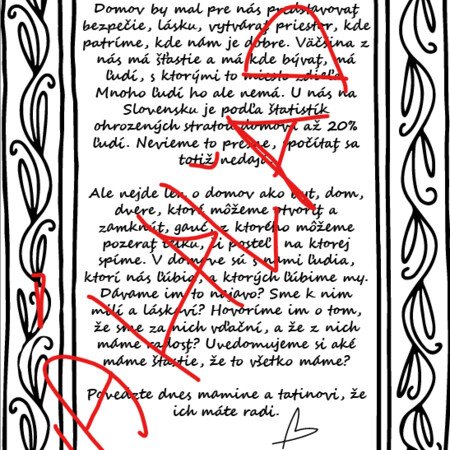 Domov by mal pre nás predstavovať
bezpečie, lásku, vytvárať priestor, kde
patríme, kde nám je dobre. Väčšina z
nás má šťastie a má kde bývať, má
ľudí, s ktorými to miesto zdieľa.
Mnoho ľudí ho ale nemá. U nás na
Slovensku je podľa štatistík
ohrozených stratou domova až 20%
ľudí. Nevieme to presne, spočítať sa
totiž nedajú.
Ale nejde len o domov ako byt, dom,
dvere, ktoré môžeme otvoriť a
zamknúť, gauč, z ktorého môžeme
pozerať telku, či posteľ, na ktorej
spíme. V domove sú s nami ľudia,
ktorí nás ľúbia a ktorých ľúbime my.
Dávame im to najavo? Sme k nim
milí a láskaví? Hovoríme im o tom,
že sme za nich vďační, a že z nich
máme radosť? Uvedomujeme si aké
máme šťastie, že to všetko máme?
Povedzte dnes mamine a tatinovi, že
ich máte radi.